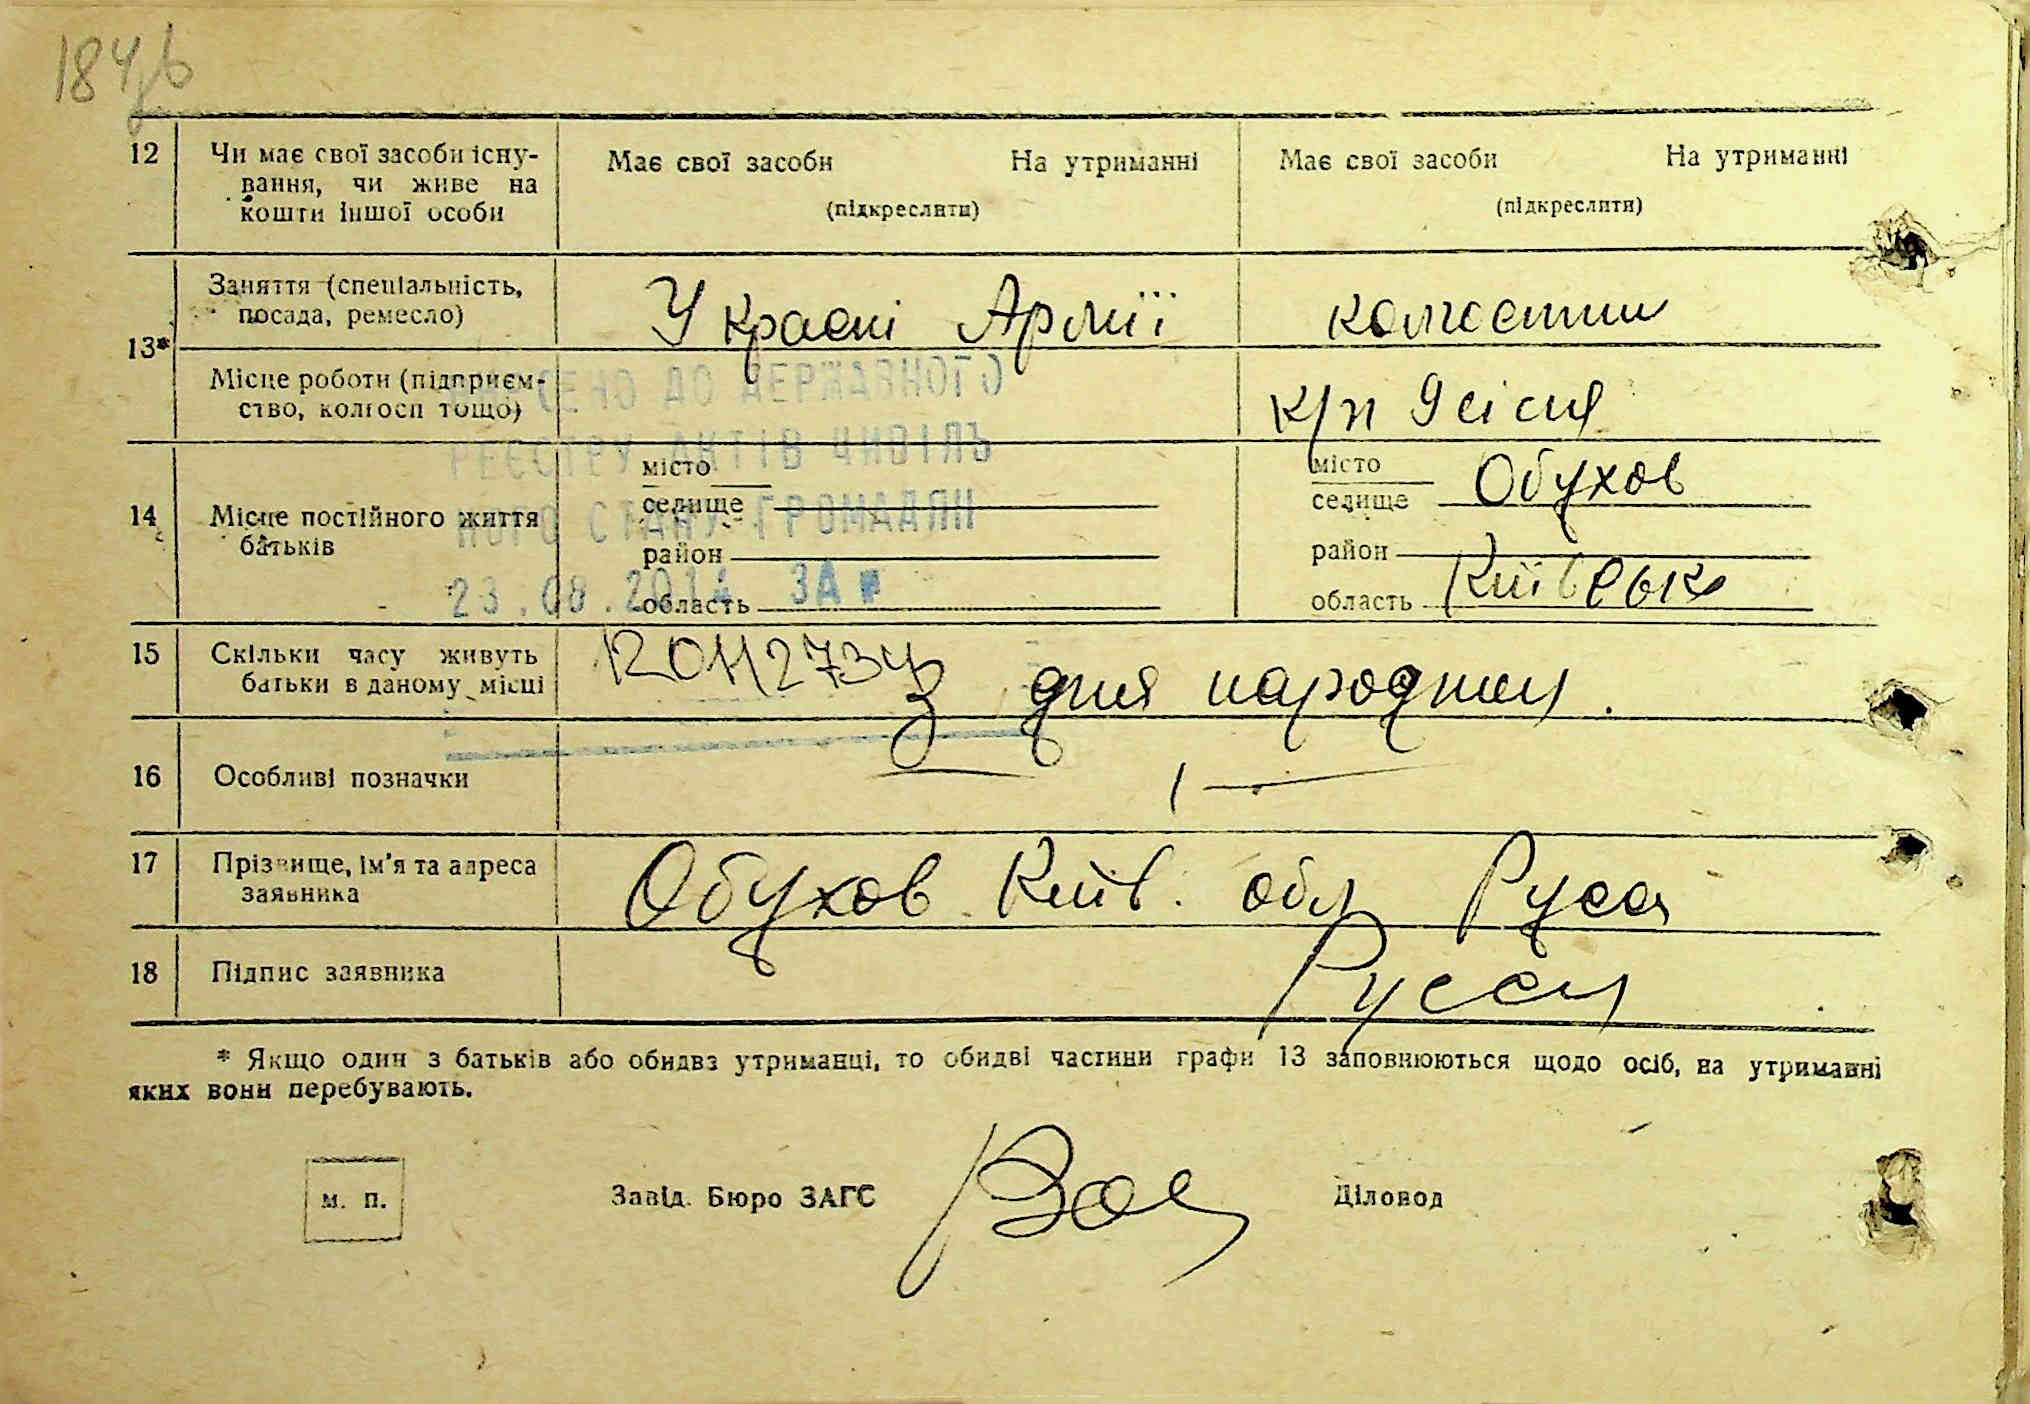 12 Чи має свої засоби існу-
вання, чи живе на
кошти іншої особи
Має свої засоби На утриманні
(підкреслити)
Має свої засоби На утриманні
(підкреслити)
13*
Заняття (спеціальність,
посада, ремесло)
У Красні Армії
Місце роботи (підприєм-
ство, колгосп тощо)
к/п
ДО ДЕРЖАВНОГО
РЕЄСТРУ АКТІВ ЦИВІЛЬ
НОГО СТАНУ ГРОМАДЯН
23.08.2014 ЗА №
12011273
14 Місце постійного життя
батьків
місто
селище
район
область
місто
селище Обухов
район
область Київськ
15 Скільки часу живуть
батьки в даному місці
З дня народжен.
16 Особливі позначки
17 Прізвище, ім'я та адреса
заявника
Обухов Київ. обл
18 Підпис заявника
* Якщо один з батьків або обидва утриманці, то обидві частини графи 13 заповнюються щодо осіб, на утриманні
яких вони перебувають.
м. п.
Завід. Бюро ЗАГС
Діловод